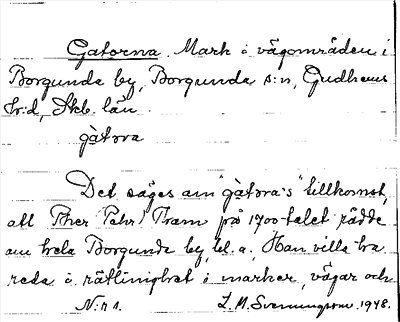 Gatorna. Mark i vägområden i
Borgunda by, Borgunda s:n, Gudhems
hr:d, Skb. län.
gàtora
Det säges om "gàtora's" tillkomst,
att Pher (Pehr) Tham på 1700-talet rådde
om hela Borgunda by, bl.a., Han ville ha
reda i rätlinighet i marker, vägar och
N:r 1. L. M. Svenungsson 1948.